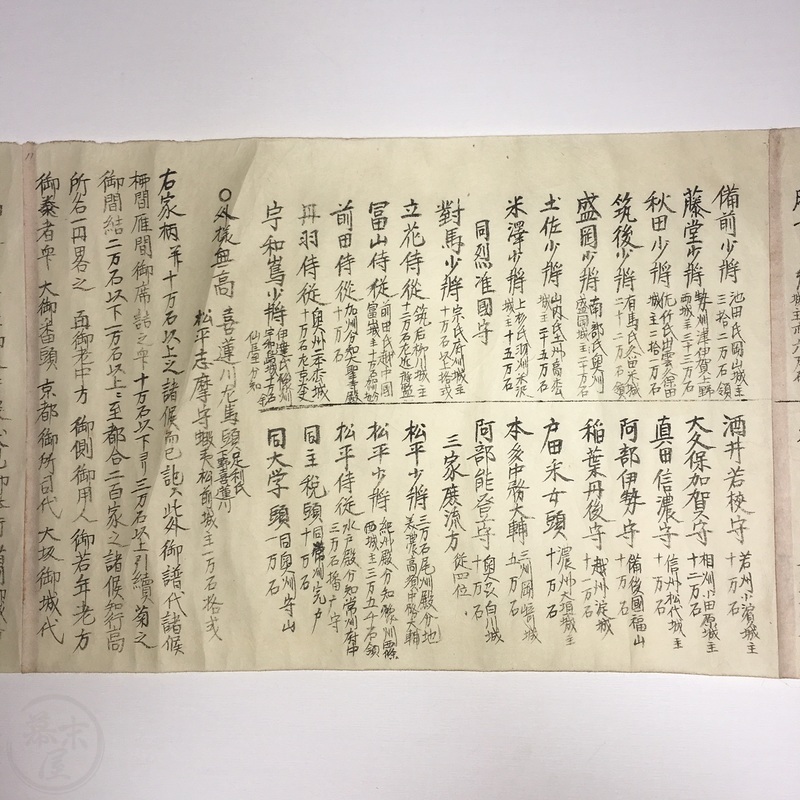 備前少将 池田氏岡山城主
三拾二万石領
藤堂少将 勢州津伊賀上野
両城主三十三万石
秋田少将 佐竹氏出雲久保田
城主二拾二万石
筑後少将 有馬氏久留米城
二十二万石領
盛岡少将 南部氏奥州
盛岡城主二十万石
土佐少将 山内氏土州高知
城主二十五万石
米澤少将 上杉氏羽州米沢
城主十五万石
同烈准國守
對馬少将 宗氏府州城主
十万石以上格式
立花侍従 筑後柳川城主
十三万石左近将監
冨山侍従 前田氏越中國
富山城主十万石
前田侍従 加州分知
十万石
丹羽侍従 奥州二本松城
十万石左京大夫
宇和嶌少将 伊達氏豫州
宇和島城主十万石
仙臺分知
酒井若狭守 若州小濱城主
十万石
大久保加賀守 相州小田原城主
十二万石
真田信濃守 信州松代城主
十万石
阿部伊勢守 備後國福山
十万石
稲葉丹後守 越州淀城
十一万石
戸田采女頭 濃州大垣城主
十万石
本多中務大輔 三州岡崎城
五万石
阿部能登守 奥州白川城
十万石
三家庶流方 従四位
松平少将 三万石尾州殿分地
美濃高須中務大輔
松平少将 紀州殿分知豫州西條
西城主三万五千石領
松平侍従 水戸殿分知常州府中
二万石播十守
同主税頭 同常州宍戸
一万石
同大学頭 同奥州守山
二万石
〇外様無高 喜連川左馬頭 足利氏
下野喜連川
松平志摩守 蝦夷松前城主一万石格式
右家柄并十万石以上之諸候而已記ス此外御譜代諸候
柳間雁間御席詰之衆十万石以下ヨリ三万石以上引續菊之
御間結二万石以下一万石以上ニ至都合二百家之諸候知行高
所名一円畧之 再御老中方 御側御用人 御若年老方
御奏者衆 大御番頭 京都御所司代 大坂御城代